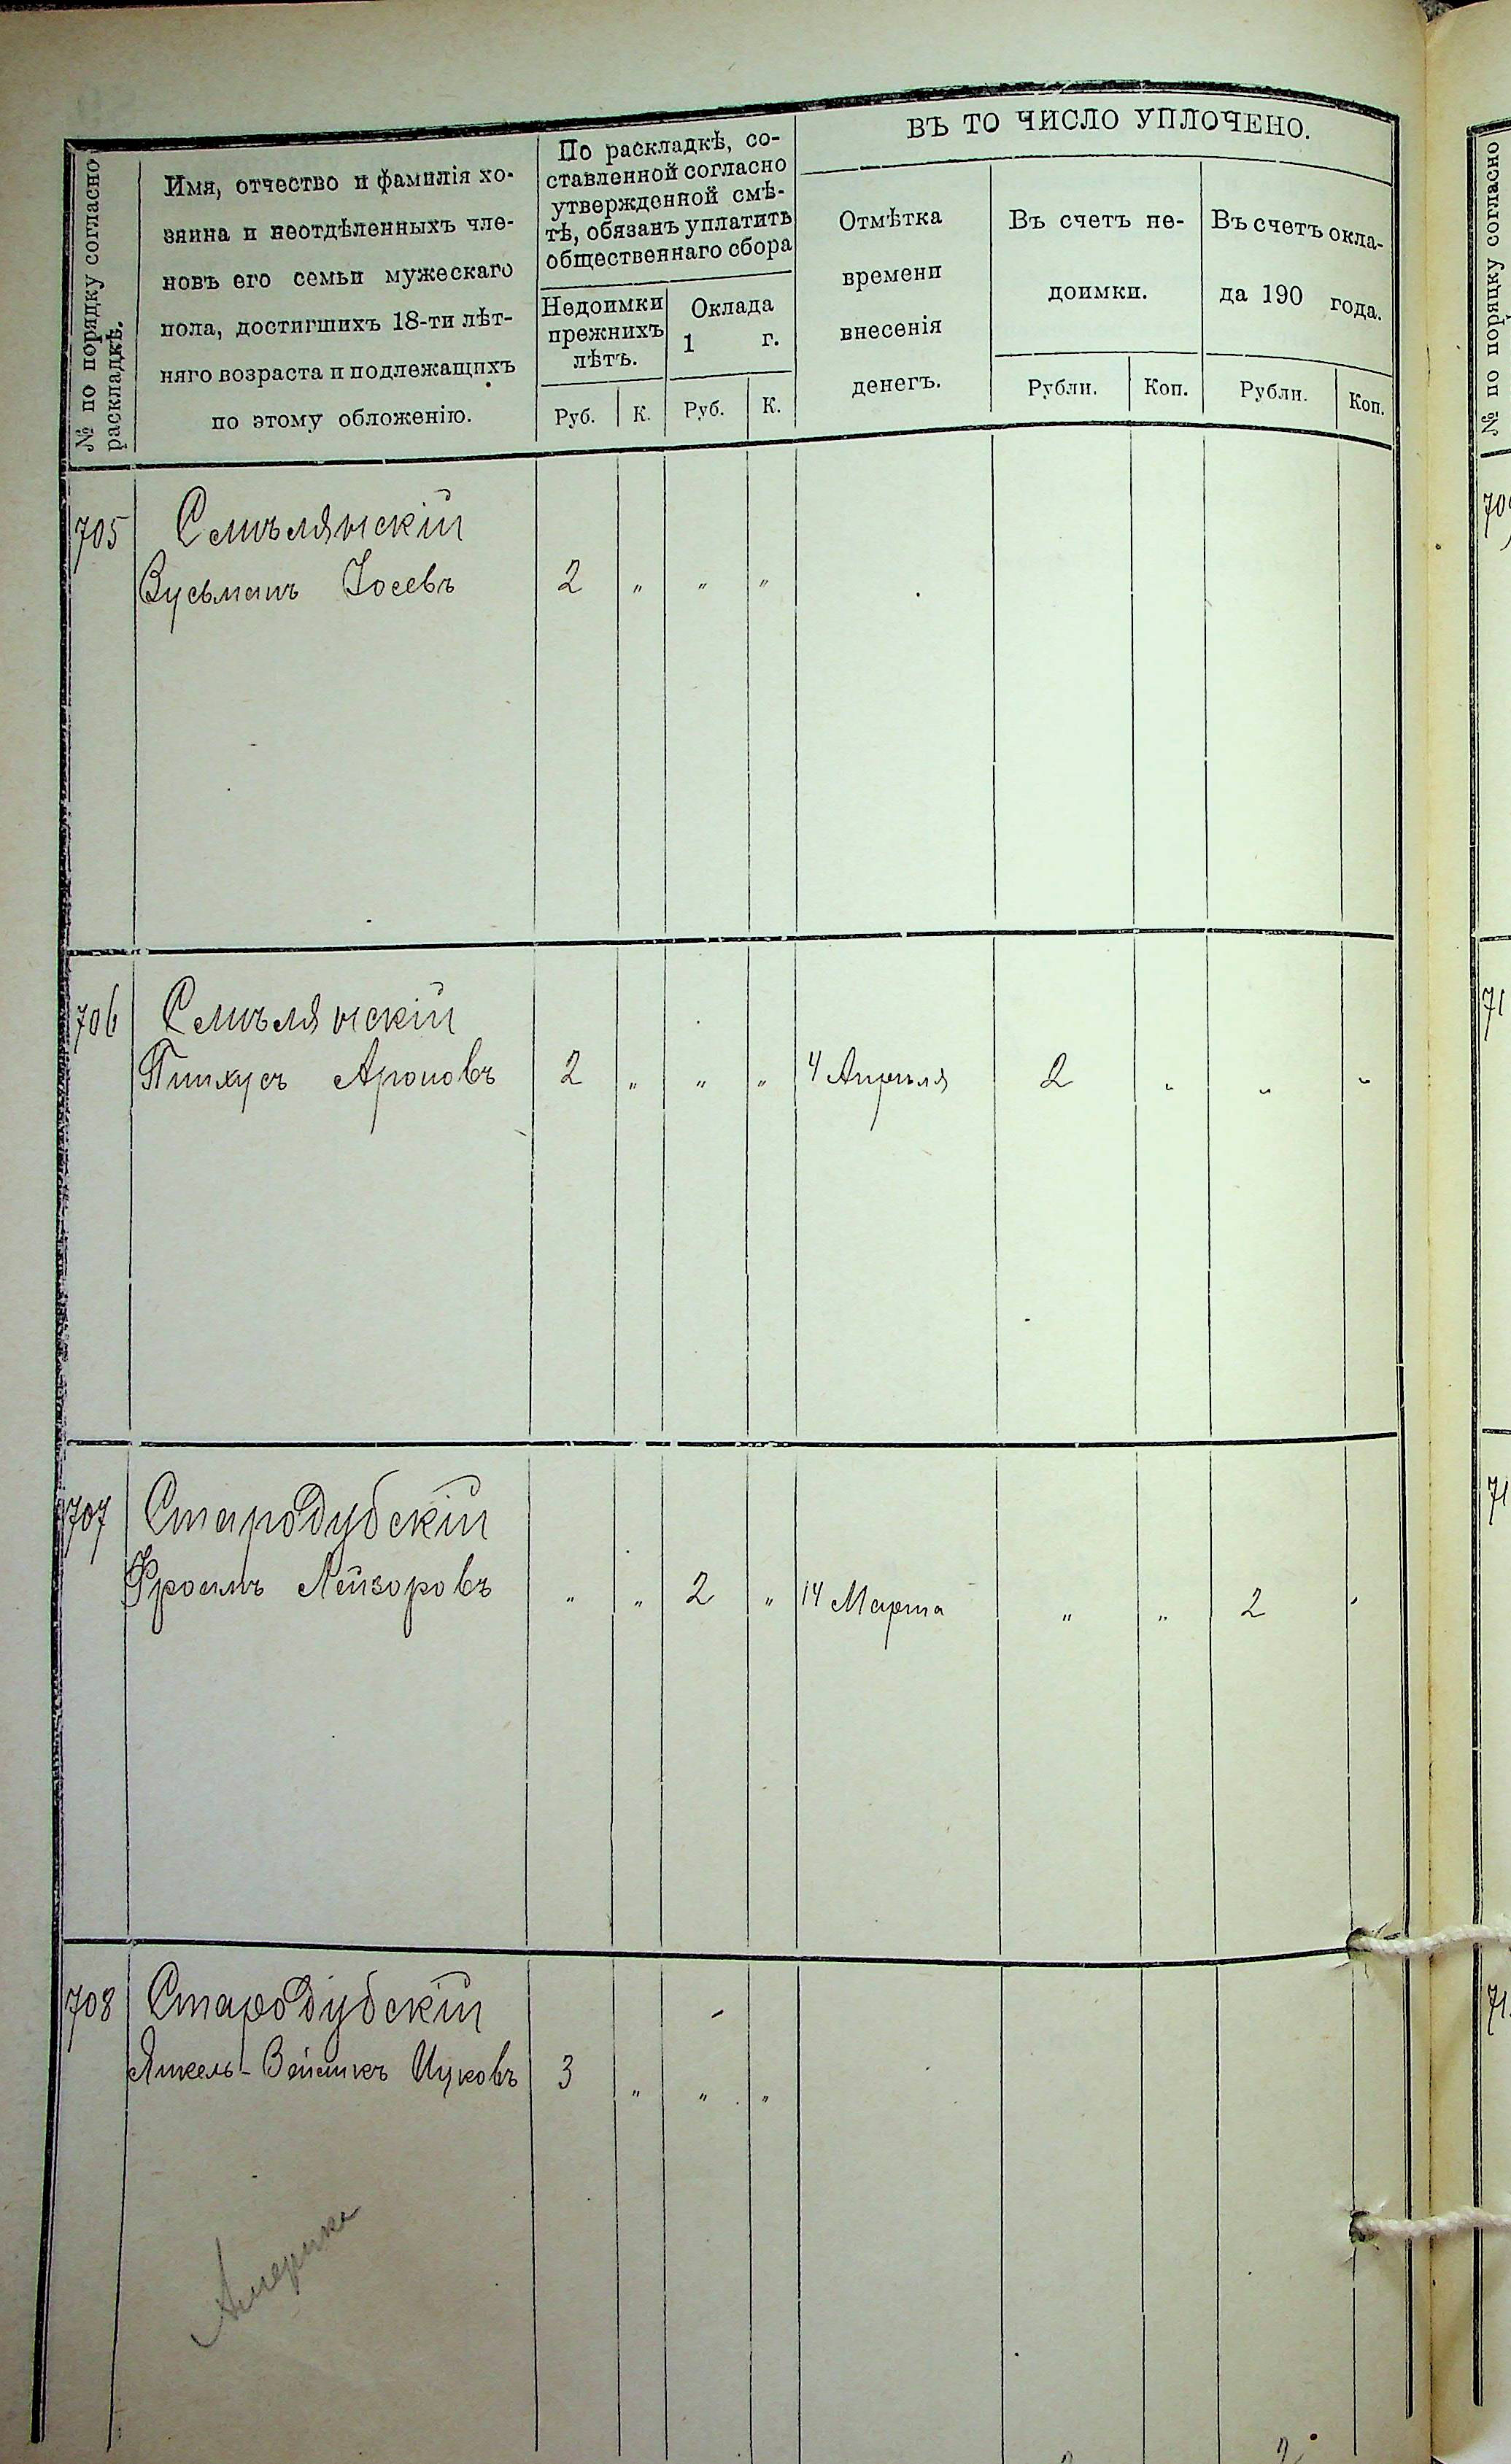 № по порядку согласно
раскладкѣ.
Имя, отчество и фамилія хо-
зяина и неотдѣленныхъ чле-
новъ его семьи мужескаго
пола, достигшихъ 18-ти лѣт-
няго возраста и подлежащихъ
по этому обложенію.
По раскладкѣ, со-
ставленной согласно
утвержденной смѣ-
тѣ, обязанъ уплатить
общественнаго сбора
Недоимки
прежнихъ
лѣтъ.
Оклада
1 г.
Руб. К. Руб. К.
ВЪ ТО ЧИСЛО УПЛОЧЕНО.
Отмѣтка
времени
внесенія
денегъ.
Въ счетъ не-
доимки.
Рубли. Коп.
Въ счетъ окла-
да 190 года.
Рубли. Коп.
705 Смѣлянскій
Зусьманъ Іосевъ 2 " " "
706 Смѣлянскій
Пинхусъ Ароновъ 2 " " " 4 Апрѣля 2 " " "
707 Стародубскій
Фроимъ Лейзоровъ " " 2 " 14 Марта " " 2 "
708 Стародубскій
Янкель- Ицковъ 3 " " "
Америка
№ по порядку согласно